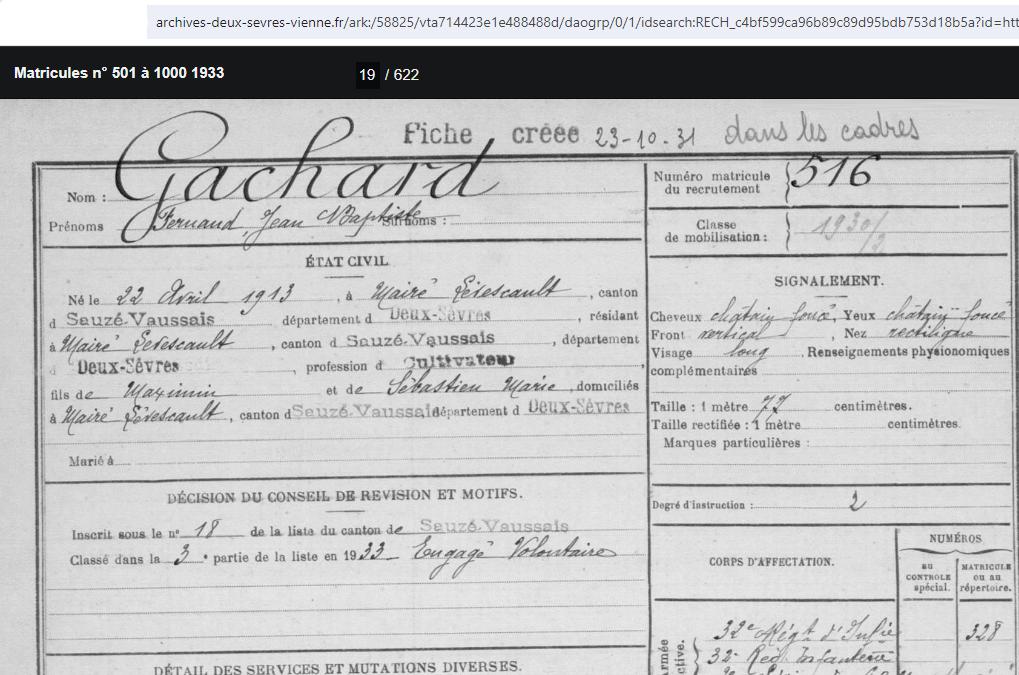 archives-deux-sevres-vienne.fr/ark:/58825/vta714423e1e488488d/daogrp/0/1/idsearch:RECH_c4bf599ca96b89c89d95bdb753d18b5a?id=htt
Matricules n° 501 à 1000 1933 19 / 622
Fiche créée 23-10-31 dans les cadres
Nom : Gachard
Prénoms Fernand, Jean Baptiste Surnoms :
ÉTAT CIVIL
Né le 22 Avril 1913, à Mairé Lévescault, canton
d Sauzé-Vaussais département d Deux-Sèvres, résidant
à Mairé Lévescault, canton d Sauzé-Vaussais, département
d Deux-Sèvres, profession d Cultivateur,
fils de Maximin et de Sébastien Marie, domiciliés
à Mairé Lévescault, canton d Sauzé-Vaussais département d Deux-Sèvres
Marié à
DÉCISION DU CONSEIL DE REVISION ET MOTIFS.
Inscrit sous le n° 18 de la liste du canton de Sauzé-Vaussais
Classé dans la 3e partie de la liste en 1933 Engagé Volontaire
DÉTAIL DES SERVICES ET MUTATIONS DIVERSES.
Numéro matricule du recrutement 516
Classe de mobilisation : 1930/3
SIGNALEMENT.
Cheveux châtain foncé, Yeux châtain foncé
Front vertical, Nez rectiligne
Visage long, Renseignements physionomiques
complémentaires
Taille : 1 mètre 77 centimètres.
Taille rectifiée : 1 mètre centimètres.
Marques particulières :
Degré d'instruction : 2
CORPS D'AFFECTATION.
NUMÉROS
au CONTROLE spécial.
MATRICULE ou au répertoire.
Armée active.
32e Régt d'Infie 328
32e Rég. Infanterie